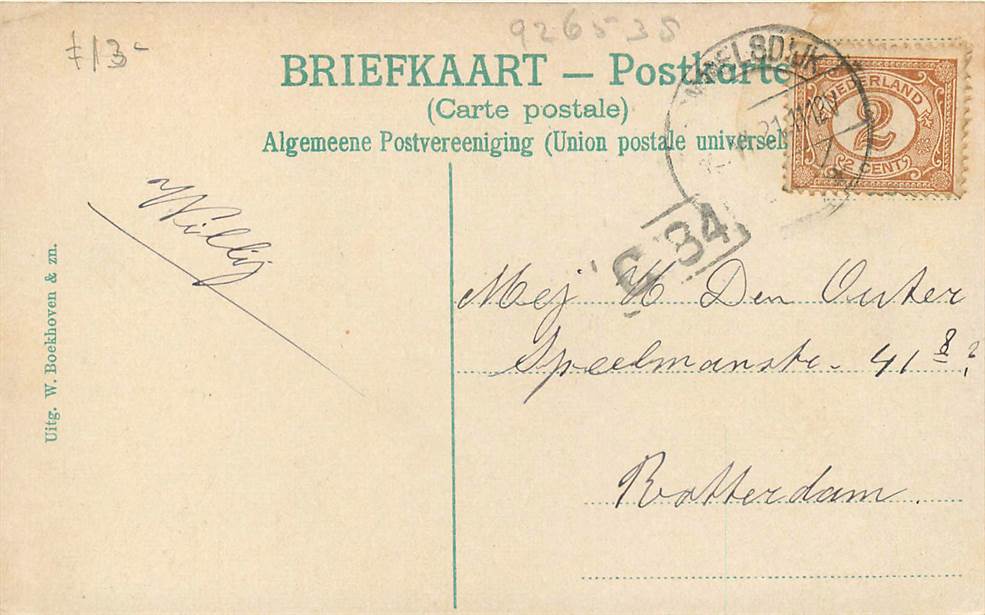 926535
f13-
BRIEFKAART — Postkarte
(Carte postale)
Algemeene Postvereeniging (Union postale universel
NEDERLAND
2
2 CENT
ELSDIJK
G 34
Willy
Mej H Den Outer
Speelmanstr. 41 8?
Rotterdam.
Uitg. W. Boekhoven & zn.